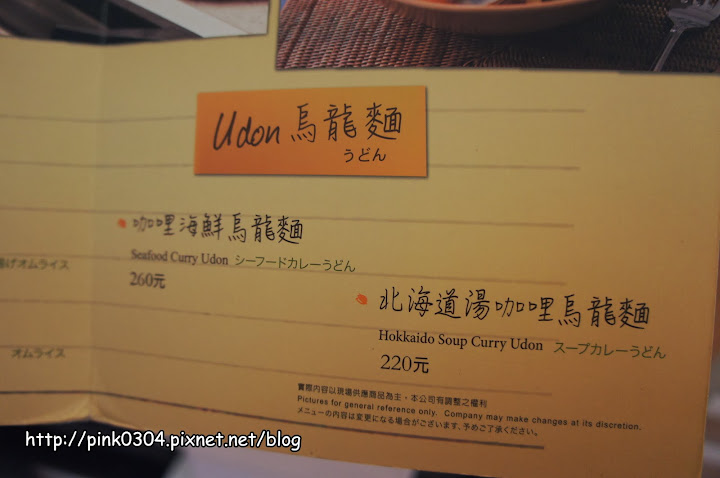 Udon 烏龍麵
うどん
咖哩海鮮烏龍麵
Seafood Curry Udon シーフードカレーうどん
260元
げオムライス
オムライス
北海道湯咖哩烏龍麵
Hokkaido Soup Curry Udon スープカレーうどん
220元
實際內容以現場供應商品為主，本公司有調整之權利
Pictures for general reference only. Company may make changes at its discretion.
メニューの内容は変更になる場合がございます、予めご了承ください。
http://pink0304.pixnet.net/blog